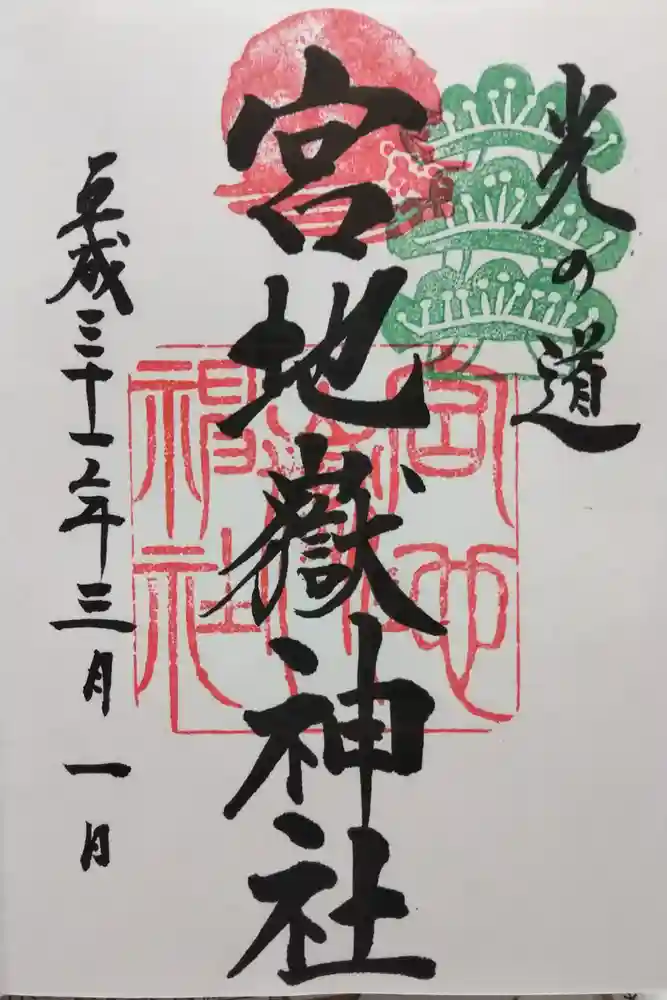 光の道
宮地嶽神社
平成三十一年三月一日
宮地
嶽
神社